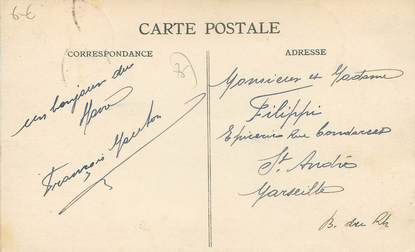 6-€
CARTE POSTALE
CORRESPONDANCE
ADRESSE
un bonjour du
Havre
François
Monsieur et Madame
Filippi
Epicerie Rue Condorcet
St André
Marseille
B. du Rh